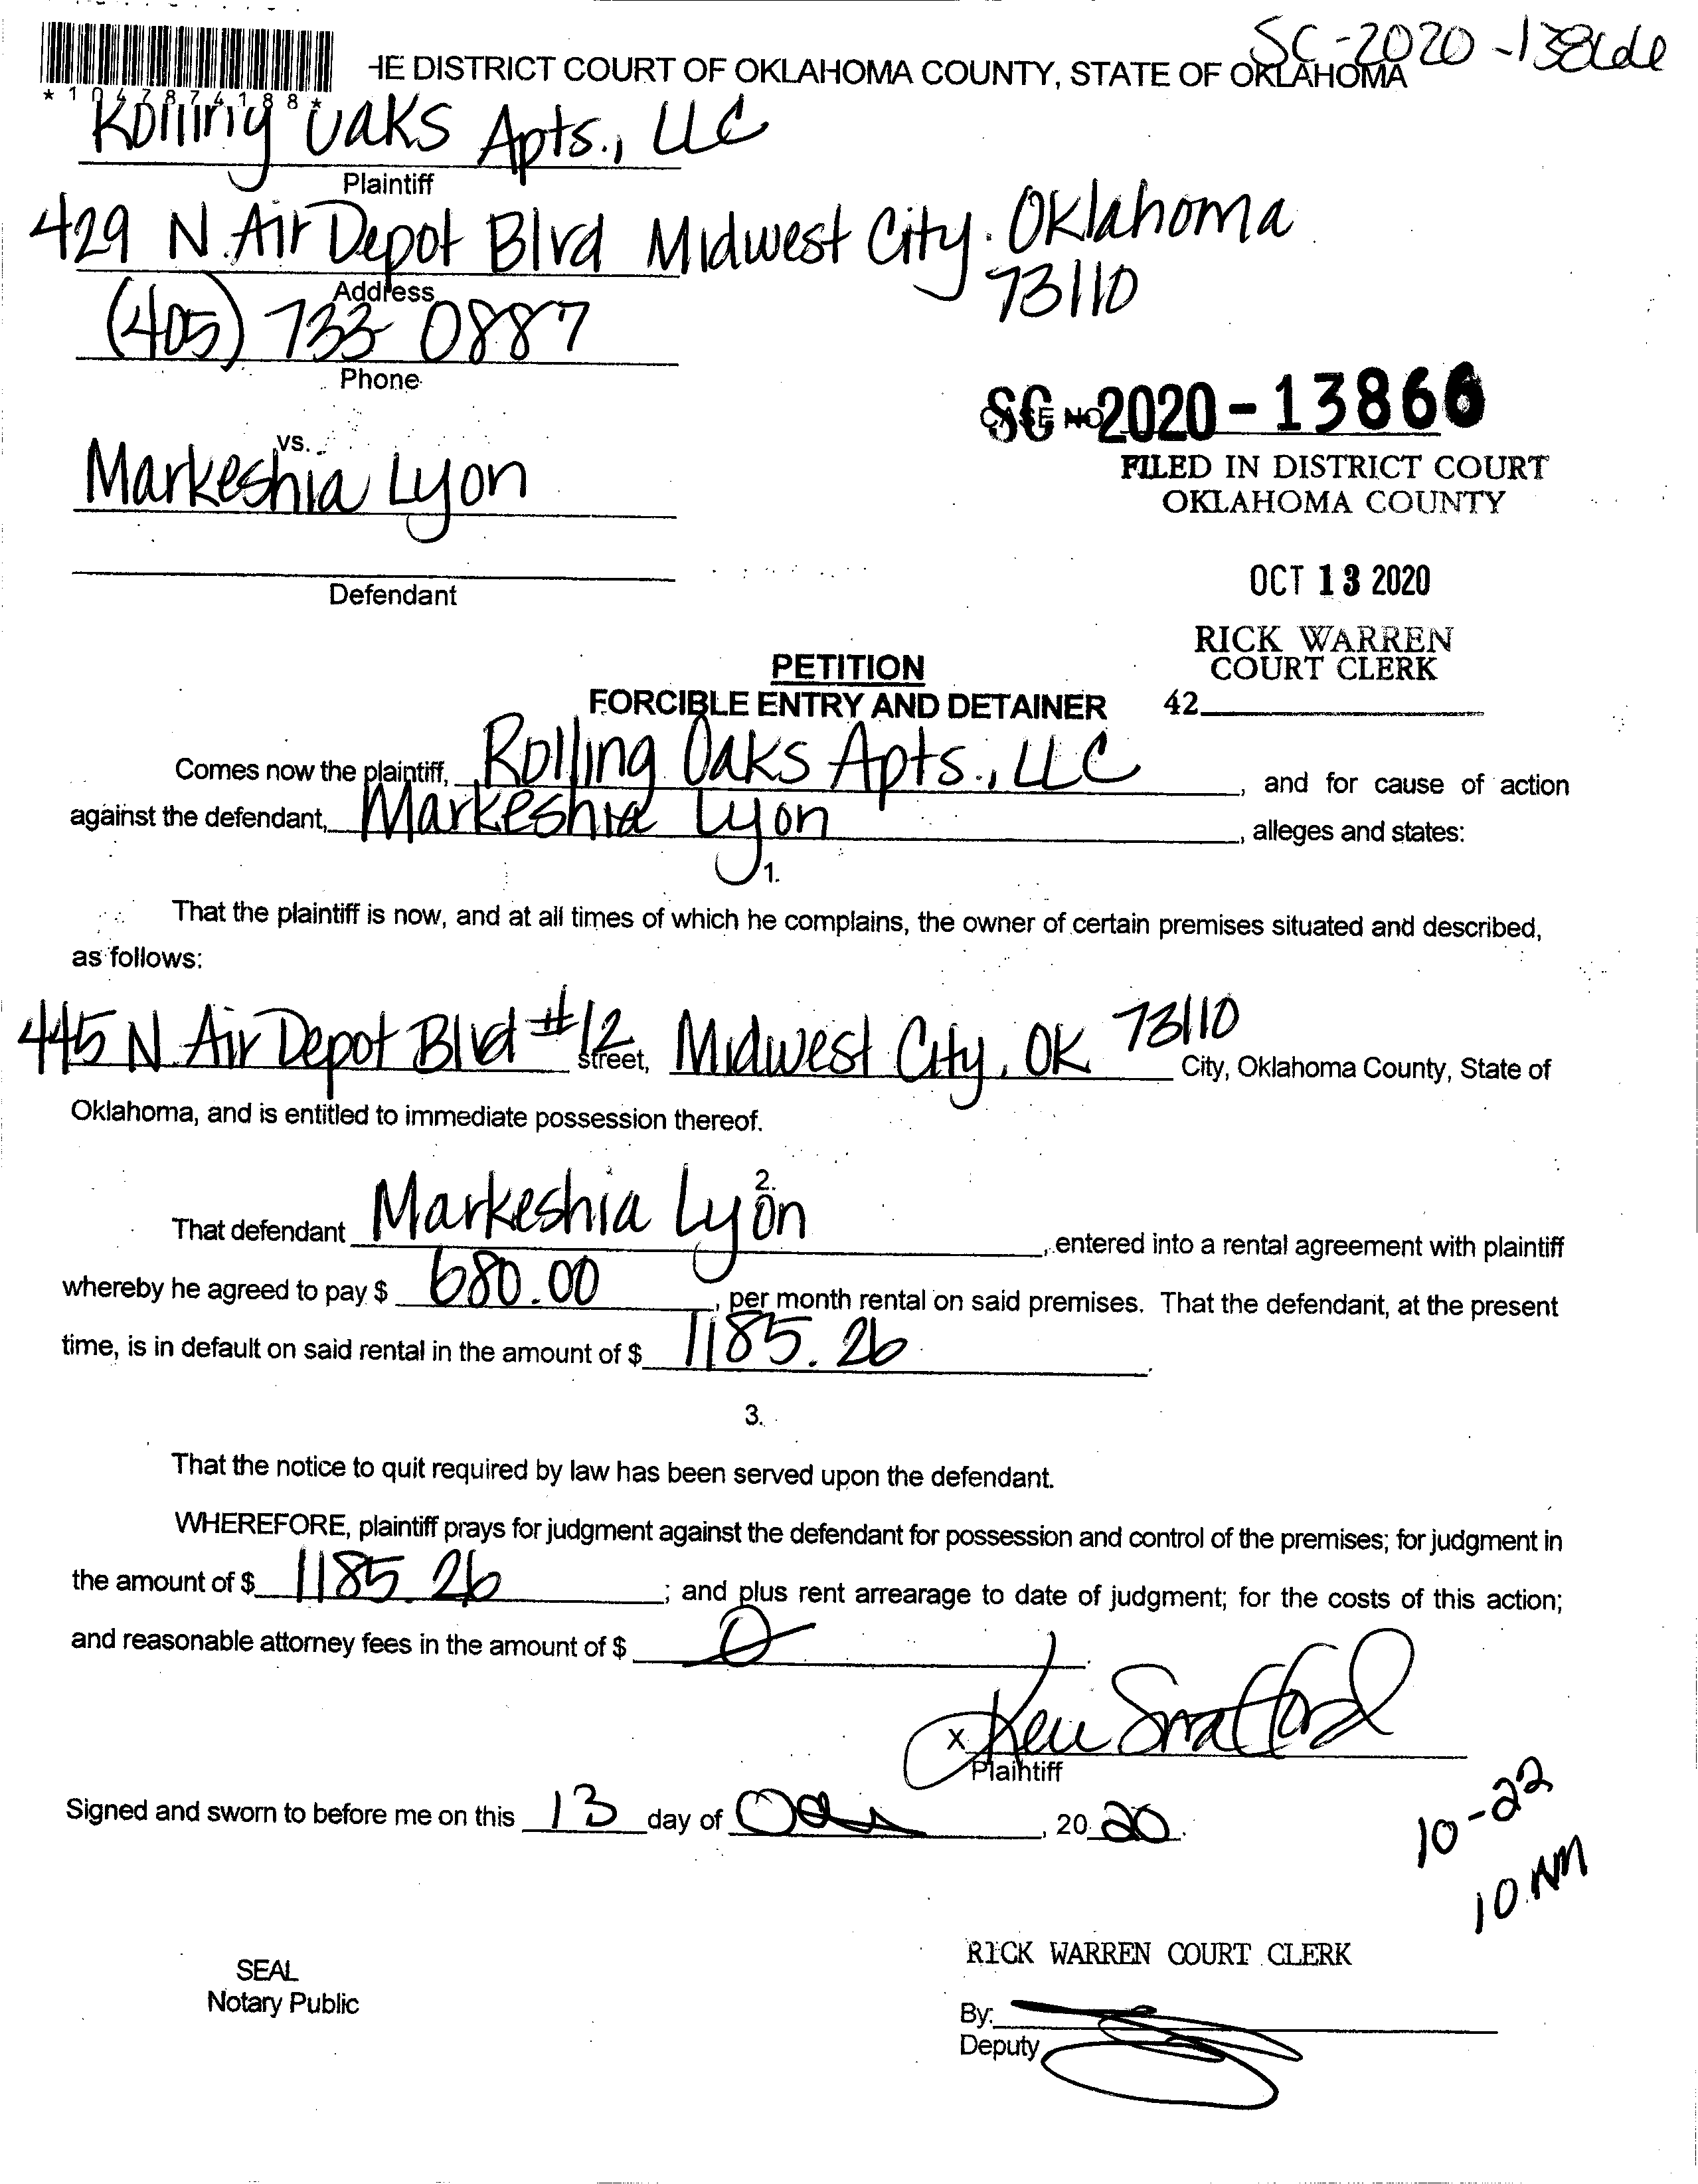 SC-2020-13866
HE DISTRICT COURT OF OKLAHOMA COUNTY, STATE OF OKLAHOMA
*1047874188*
Rolling Oaks Apts., LLC
Plaintiff
429 N. Air Depot Blvd Midwest City. Oklahoma
73110
Address
(405) 733-0887
Phone
SC NO 2020-13866
CASE
vs.
FILED IN DISTRICT COURT
Markeshia Lyon
OKLAHOMA COUNTY
OCT 13 2020
Defendant
RICK WARREN
PETITION
COURT CLERK
FORCIBLE ENTRY AND DETAINER
42
Comes now the plaintiff, Rolling Oaks Apts., LLC, and for cause of action
against the defendant, Markeshia Lyon, alleges and states:
1.
That the plaintiff is now, and at all times of which he complains, the owner of certain premises situated and described,
as follows:
445 N. Air Depot Blvd #12 street, Midwest City, OK 73110 City, Oklahoma County, State of
Oklahoma, and is entitled to immediate possession thereof.
2.
That defendant Markeshia Lyon, entered into a rental agreement with plaintiff
whereby he agreed to pay $ 680.00, per month rental on said premises. That the defendant, at the present
time, is in default on said rental in the amount of $ 1185.26.
3.
That the notice to quit required by law has been served upon the defendant.
WHEREFORE, plaintiff prays for judgment against the defendant for possession and control of the premises; for judgment in
the amount of $ 1185.26; and plus rent arrearage to date of judgment; for the costs of this action;
and reasonable attorney fees in the amount of $ 0.
x
Plaintiff
Signed and sworn to before me on this 13 day of Oct, 2020.
10-22
10 AM
RICK WARREN COURT CLERK
SEAL
Notary Public
By:
Deputy